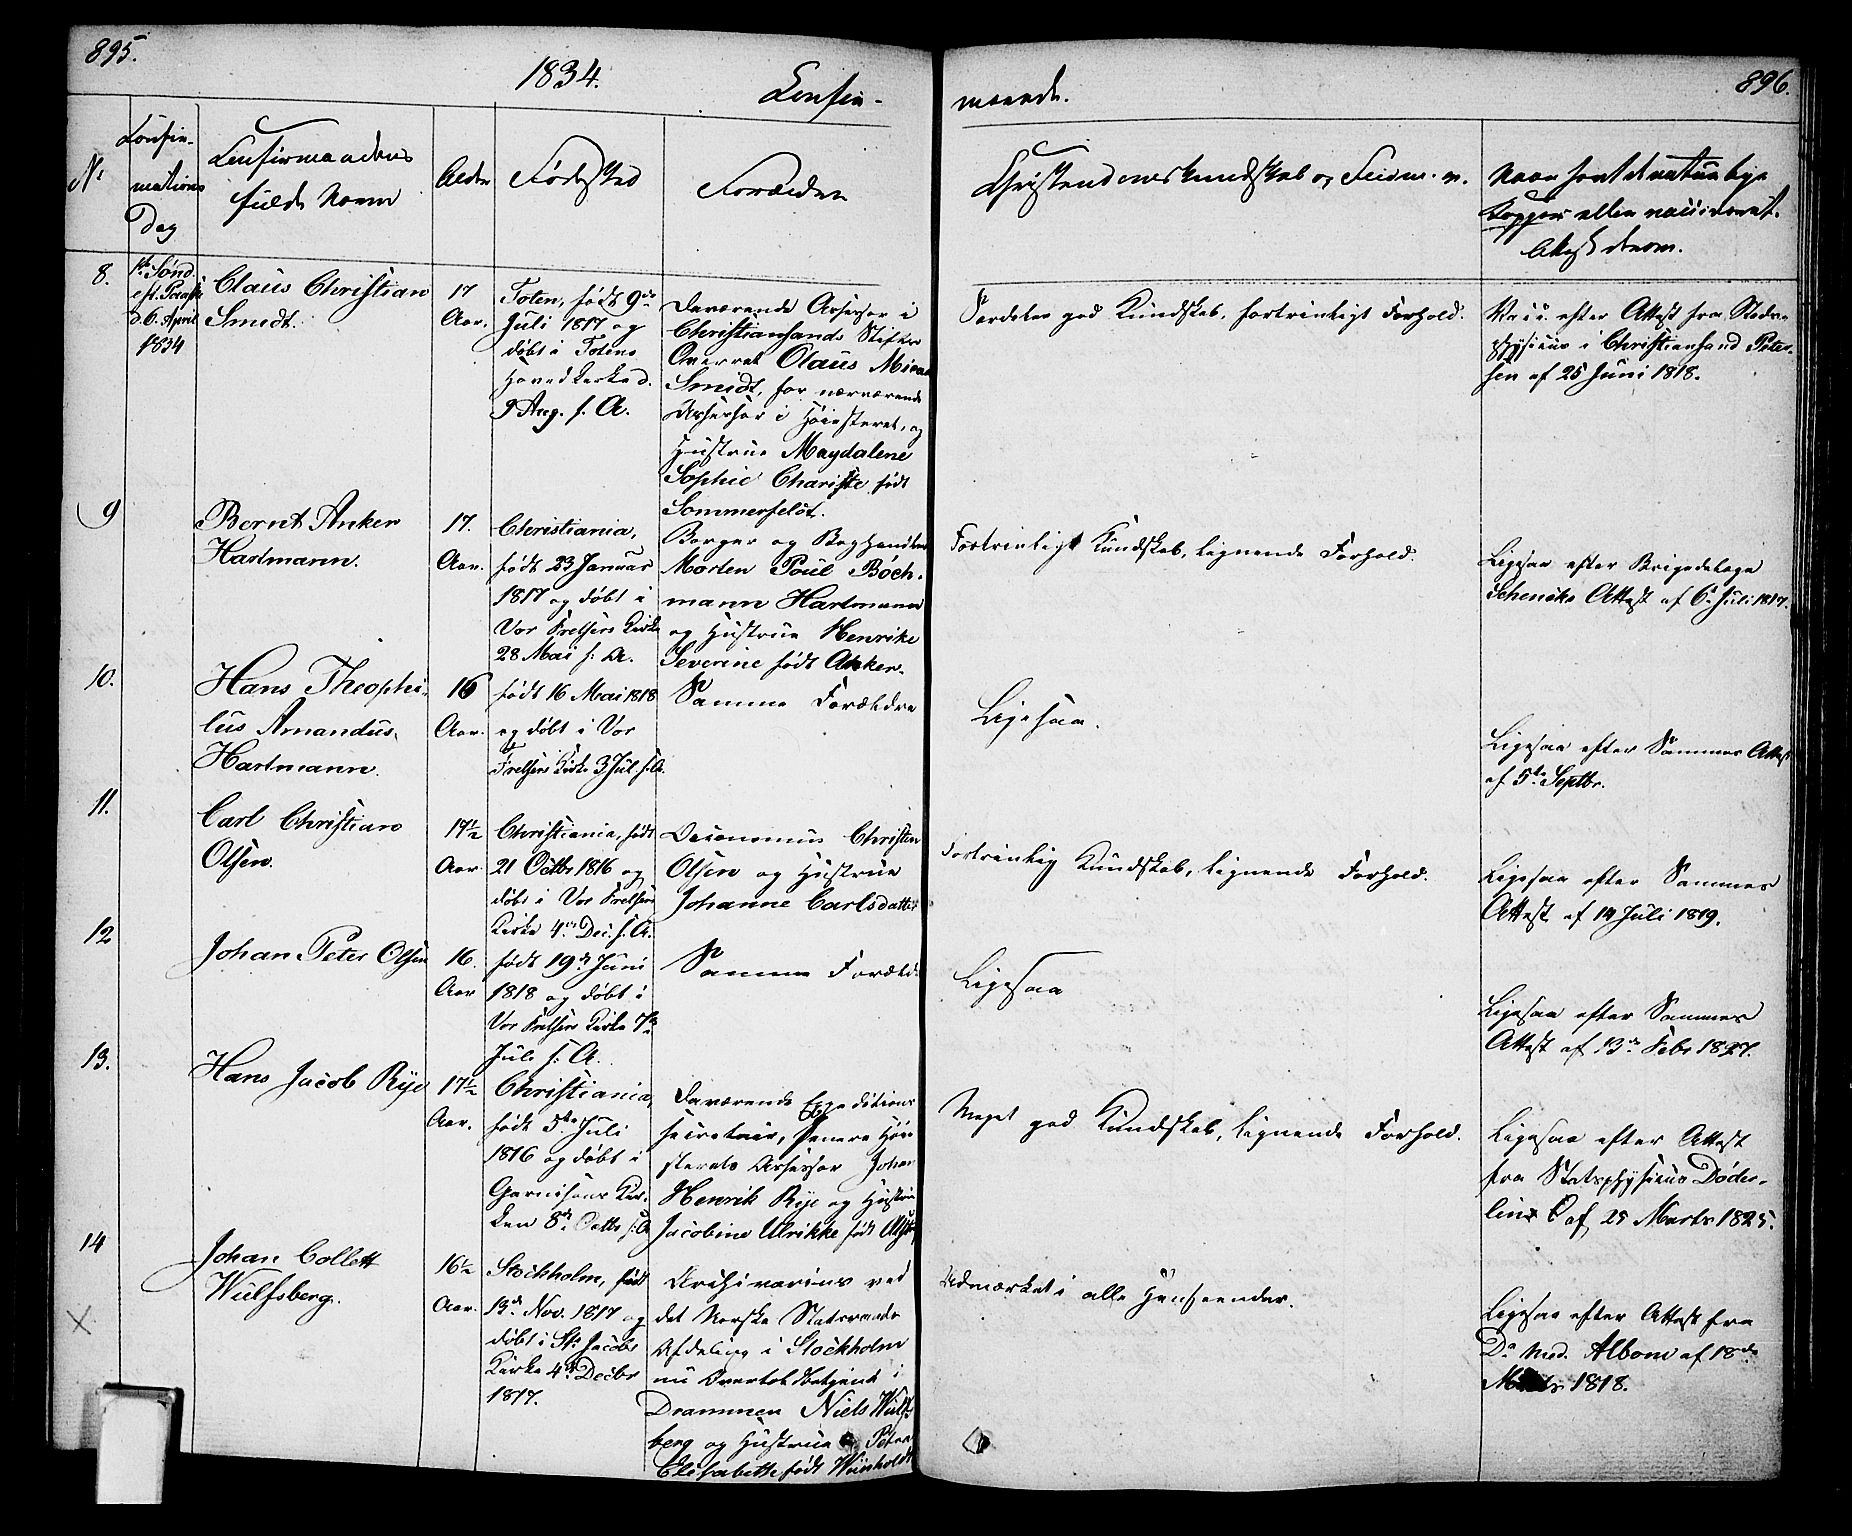 895.
1834.
Confir-
896.
merede.
No
Confir-
mations
Dag
Confirmandens
fulde Navn
Alder
Fødested
Forældre
Christendomskundskab og
Naar havt de naturlige
Kopper eller vaccineret.
Attest derom.
8.
1ste Sønd.
eft. Paaske
d. 6. April
1834
Claus Christian
Smidt.
17
Aar.
Toten, født 9de
Juli 1817 og
døbt i Totens
Hovedkirke d.
9 Aug. s. A.
Daværende Assessor i
Christiansands Stifts
Overret Olaus
Smidt, for nærværende
Assessor i Høiesteret, og
Hustrue Magdalene
Sophie Charisse født
Sommerfeldt.
Særdeles god Kundskab, fortrinligt Forhold.
Vacc. efter Attest fra Stads-
physicus i Christiansand Peter-
sen af 25 Juni 1818.
9
Bernt Anker
Hartmann.
17.
Aar.
Christiania,
født 23 Januar
1817 og døbt i
Vor Frelsers Kirke
28 Mai s. A.
Borger og Boghandler
Morten Poul Bøch-
mann Hartmann
og Hustrue Henrike
Severine født Anker.
Fortrinligt Kundskab, lignende Forhold.
Ligesaa efter Brigadelæge
Schencks Attest af 6 Juli 1817.
10.
Hans Theophi-
lus Amandus
Hartmann.
16
Aar.
født 16 Mai 1818
og døbt i Vor
Frelsers Kirke 3 Jul. s. A.
Samme Forældre
Ligesaa.
Ligesaa efter Sammes Attest
af 5te Septbr.
11.
Carl Christian
Olsen.
17½
Aar.
Christiania, født
21 Octbr 1816 og
døbt i Vor Frelsers
Kirke 4de Dec. s. A.
Oeconomus Christian
Olsen og Hustrue
Johanne Carlsdatter
Fortrinlig Kundskab, lignende Forhold.
Ligesaa efter Sammes
Attest af 14 Juli 1819.
12
Johan Peter Olsen
16.
Aar
født 19de Juni
1818 og døbt i
Vor Frelsers Kirke 7de
Juli s. A.
Samme Foræld.
Ligesaa
Ligesaa efter Sammes
Attest af 13de Febr 1827.
13.
Hans Jacob Rye
17½
Aar.
Christiania,
født 5te Juli
1816 og døbt i
Garnisons Kir-
ken 8de Octbr s. A
Daværende Expeditions
secretair, senere Høie
sterets Assessor Johan
Henrik Rye og Hustrue
Jacobine Ulrikke født
Meget god Kundskab, lignende Forhold.
Ligesaa efter Attest
fra Statsphysicus Døder-
lein af 25 Marts 1825.
14
Johan Collett
Wulfsberg.
16½
Aar.
Stockholm, født
13de Nov. 1817 og
døbt i St. Jacobs
Kirke 4de Decbr
1817.
Archivarius ved
det Norske Statsraads
Afdeling i Stockholm
nu Overtoldbetjent i
Drammen Niels Wulfs-
berg og Hustrue Petra
Elisabethe født
Udmærket i alle Henseender.
Ligesaa efter Attest fra
Dr. Med. Albom af 18de
Marts 1818.
X